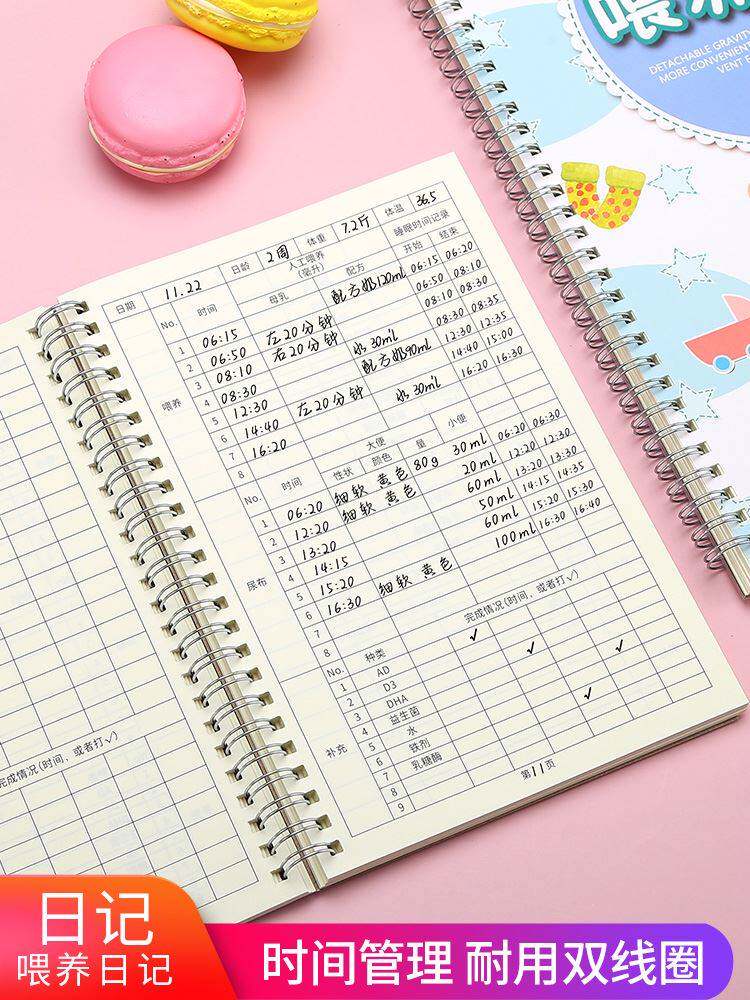 喂养
DETACHABLE GRAVITY
MORE CONVENIENT
日期 11.22 日龄 2周 体重 7.2斤 体温 36.5
No. 时间 人工喂养 睡眠时间记录
(毫升)
母乳 配方 开始 结束
喂养
1 06:15 配方奶120ml 06:15 06:20
2 06:50 左20分钟 06:50 08:10
3 08:10 右20分钟 08:10 08:30
4 08:30 水30ml 08:30 08:35
5 12:30 配方奶90ml 12:30 12:35
6 14:40 左20分钟 14:40 15:00
7 16:20 水30ml 16:20 16:30
8
No. 时间 大便 小便
性状 颜色 量
尿布
1 06:20 细软 黄色 80g 30ml 06:20 06:30
2 12:20 细软 黄色 20ml 12:20 12:30
3 13:20 60ml 13:20 13:30
4 14:15 50ml 14:15 14:35
5 15:20 60ml 15:20 15:30
6 16:30 细软 黄色 100ml 16:30 16:40
7
8
No. 种类 完成情况(时间，或者打✓)
补充
1 AD ✓
2 D3 ✓
3 DHA
4 益生菌 ✓
5 水
6 铁剂 ✓
7 乳糖酶
8
9
第11页
完成情况(时间，或者打✓)
日记
喂养日记
时间管理 耐用双线圈